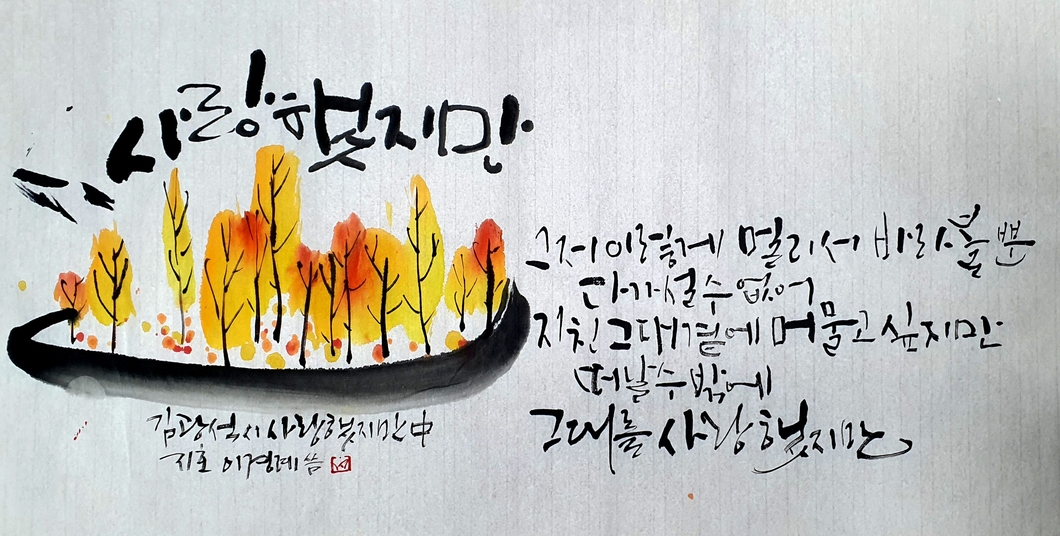 사랑했지만
그저 이렇게 멀리서 바라볼 뿐
다가설 수 없어
지친 그대 곁에 머물고 싶지만
떠날 수 밖에
그대를 사랑했지만
김광석 시 사랑했지만 中
지호 이경례 씀